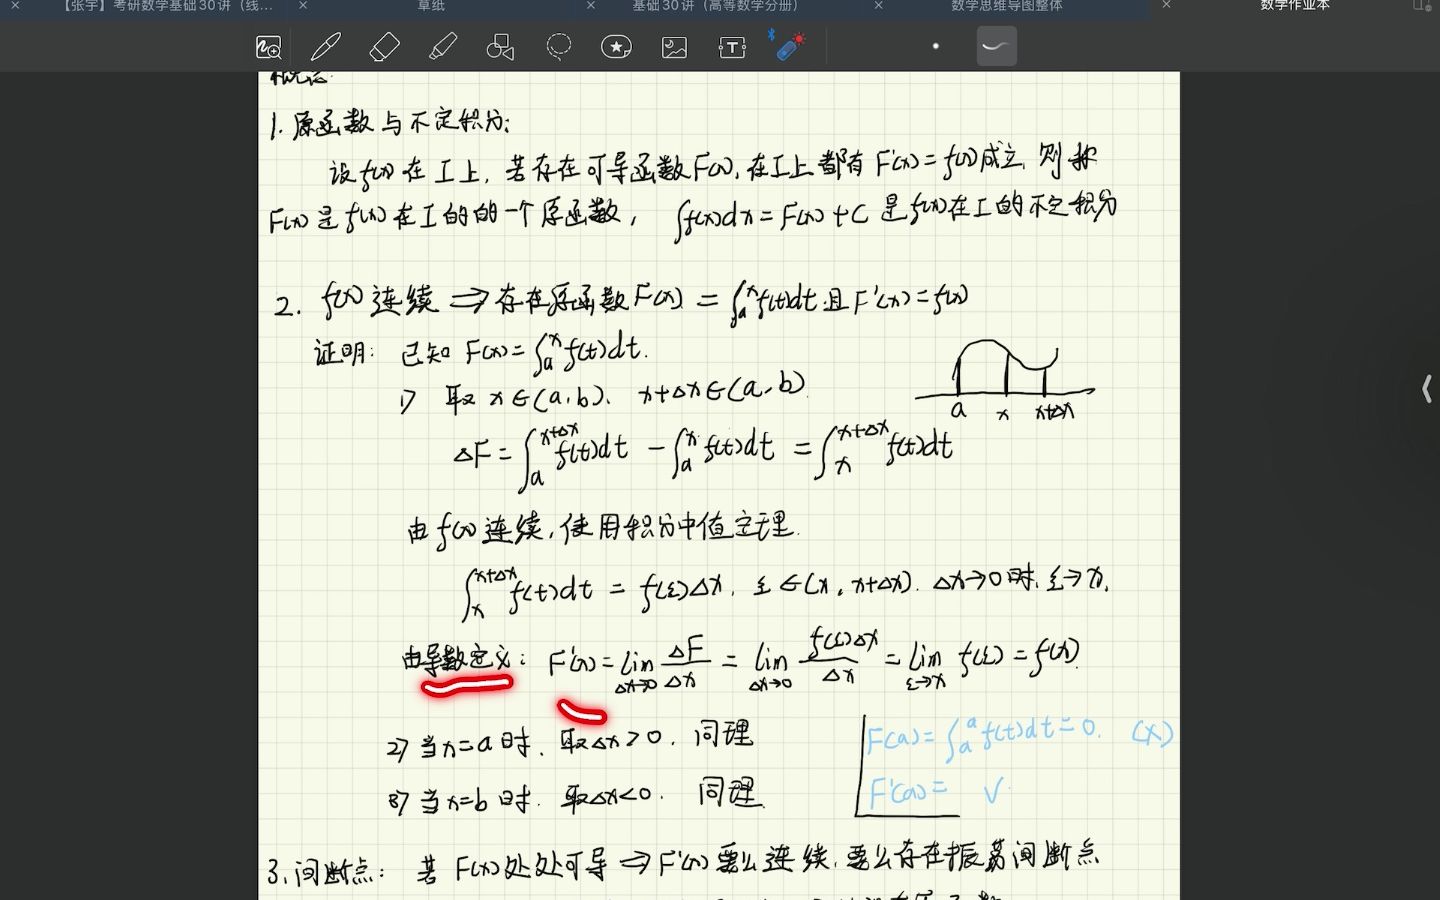 【张宇】考研数学基础30讲（线...
草纸
基础30讲（高等数学分册）
数学思维导图整体
数学作业本
概念
1. 原函数与不定积分:
设f(x)在I上, 若存在可导函数F(x), 在I上都有F'(x)=f(x)成立, 则称
F(x)是f(x)在I的的一个原函数, ∫f(x)dx=F(x)+C 是f(x)在I的不定积分
2. f(x)连续 ⇒ 存在原函数F(x) = ∫ₐˣ f(t)dt 且 F'(x)=f(x)
证明: 已知 F(x)=∫ₐˣ f(t)dt.
1) 取 x∈(a,b), x+Δx∈(a,b)
a x x+Δx
ΔF = ∫_a^{x+Δx} f(t)dt - ∫_a^x f(t)dt = ∫_x^{x+Δx} f(t)dt
由f(x)连续, 使用积分中值定理.
∫_x^{x+Δx} f(t)dt = f(ξ)Δx, ξ∈(x, x+Δx). Δx→0时, ξ→x,
由导数定义: F'(x)=lim_{Δx→0} ΔF/Δx = lim_{Δx→0} f(ξ)Δx/Δx = lim_{ξ→x} f(ξ) = f(x)
2) 当x=a时, 取Δx>0, 同理
F(a)=∫_a^a f(t)dt=0. (X)
3) 当x=b时, 取Δx<0, 同理
F'(a)= √
3. 间断点: 若 F(x)处处可导 ⇒ F'(x)要么连续, 要么存在振荡间断点